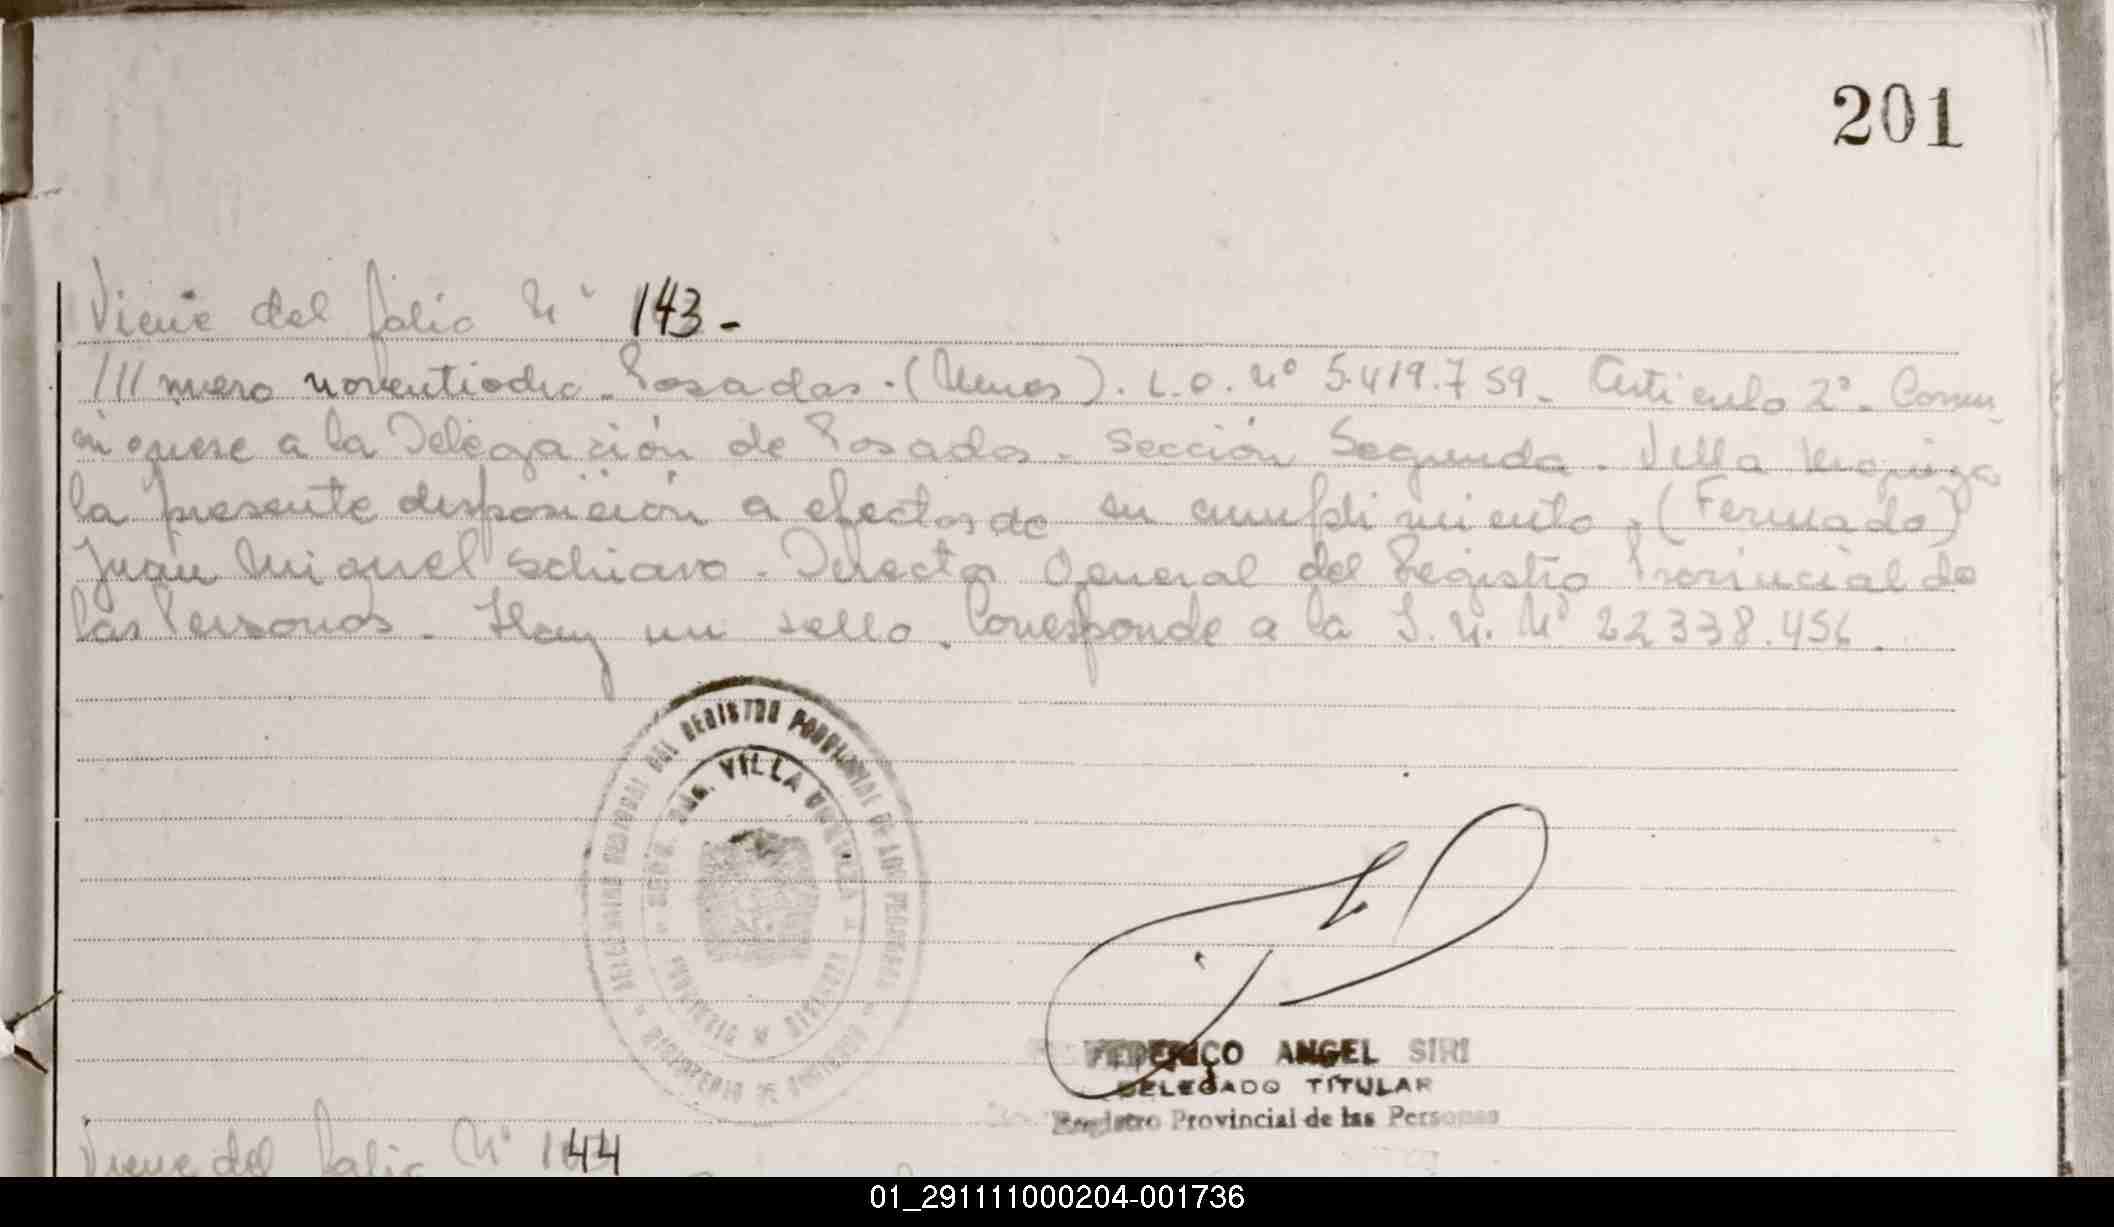 201
Viene del folio Nº 143-
///mero noventiocho. Posadas. (Mnes). L.O. Nº 5.419.759. Artículo 2º. Comu
níquese a la Delegación de Posadas. Sección Segunda. Villa Urquiza
la presente disposición a efectos de su cumplimiento. (Firmado)
Juan Miguel Schiavo. Director General del Registro Provincial de
las Personas. Hay un sello. Corresponde a la S.N. Nº 22338.456.
REGISTRO PROVINCIAL DE LAS PERSONAS
VILLA URQUIZA
FEDERICO ANGEL SIRI
DELEGADO TITULAR
Registro Provincial de las Personas
Viene del folio Nº 144
01_291111000204-001736